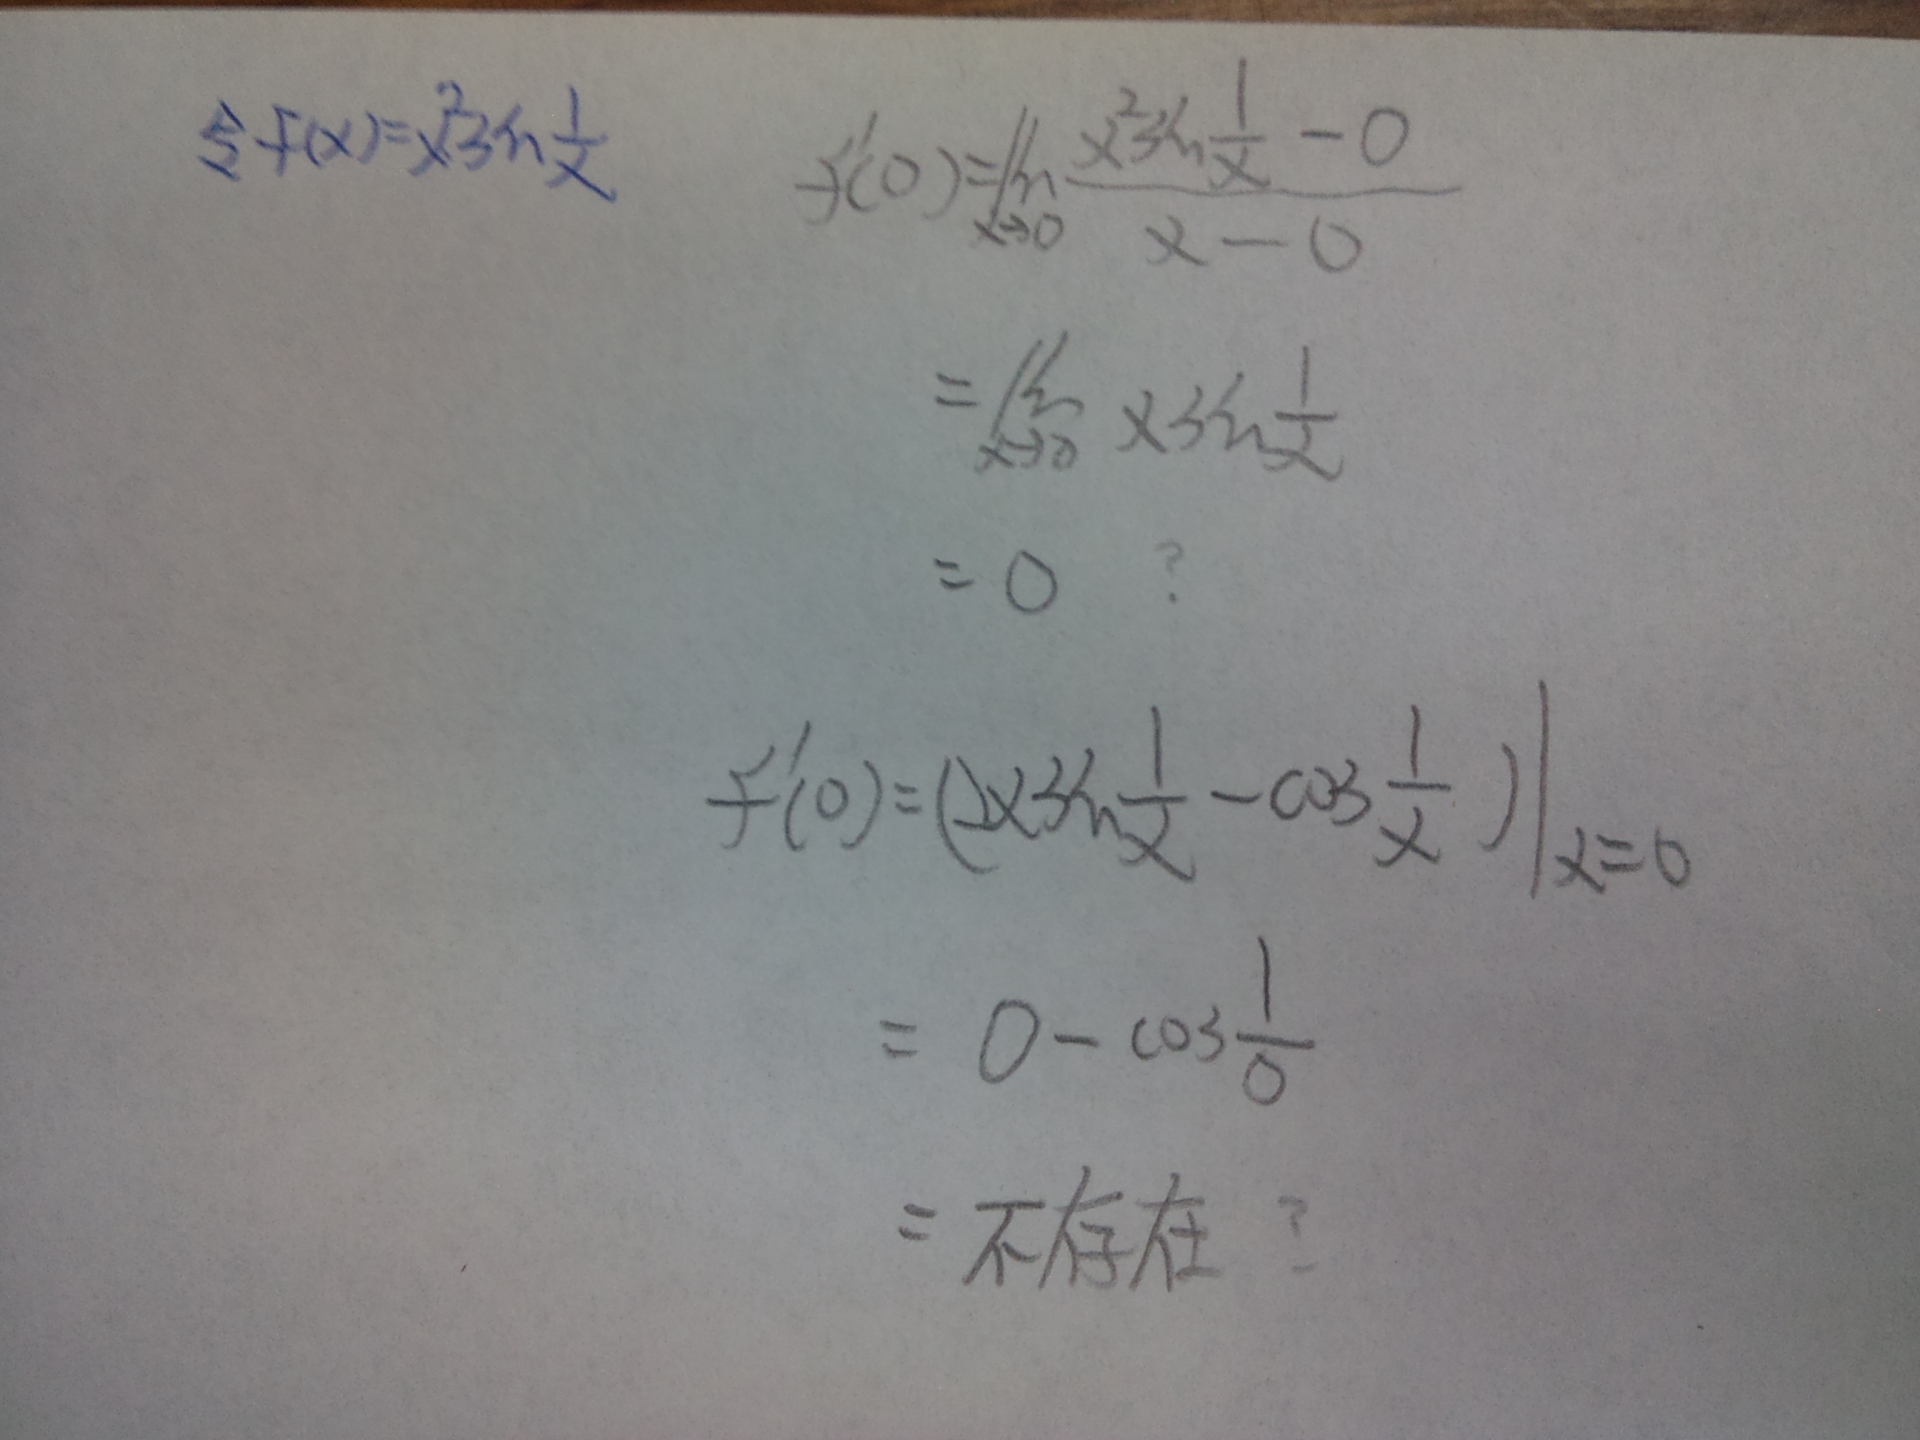 令f(x)=x²sin 1/x
f'(0)=lim x→0 (x²sin 1/x - 0)/(x-0)
=lim x→0 x sin 1/x
=0 ?
f'(0)=(2x sin 1/x - cos 1/x)|x=0
=0-cos 1/0
=不存在 ?